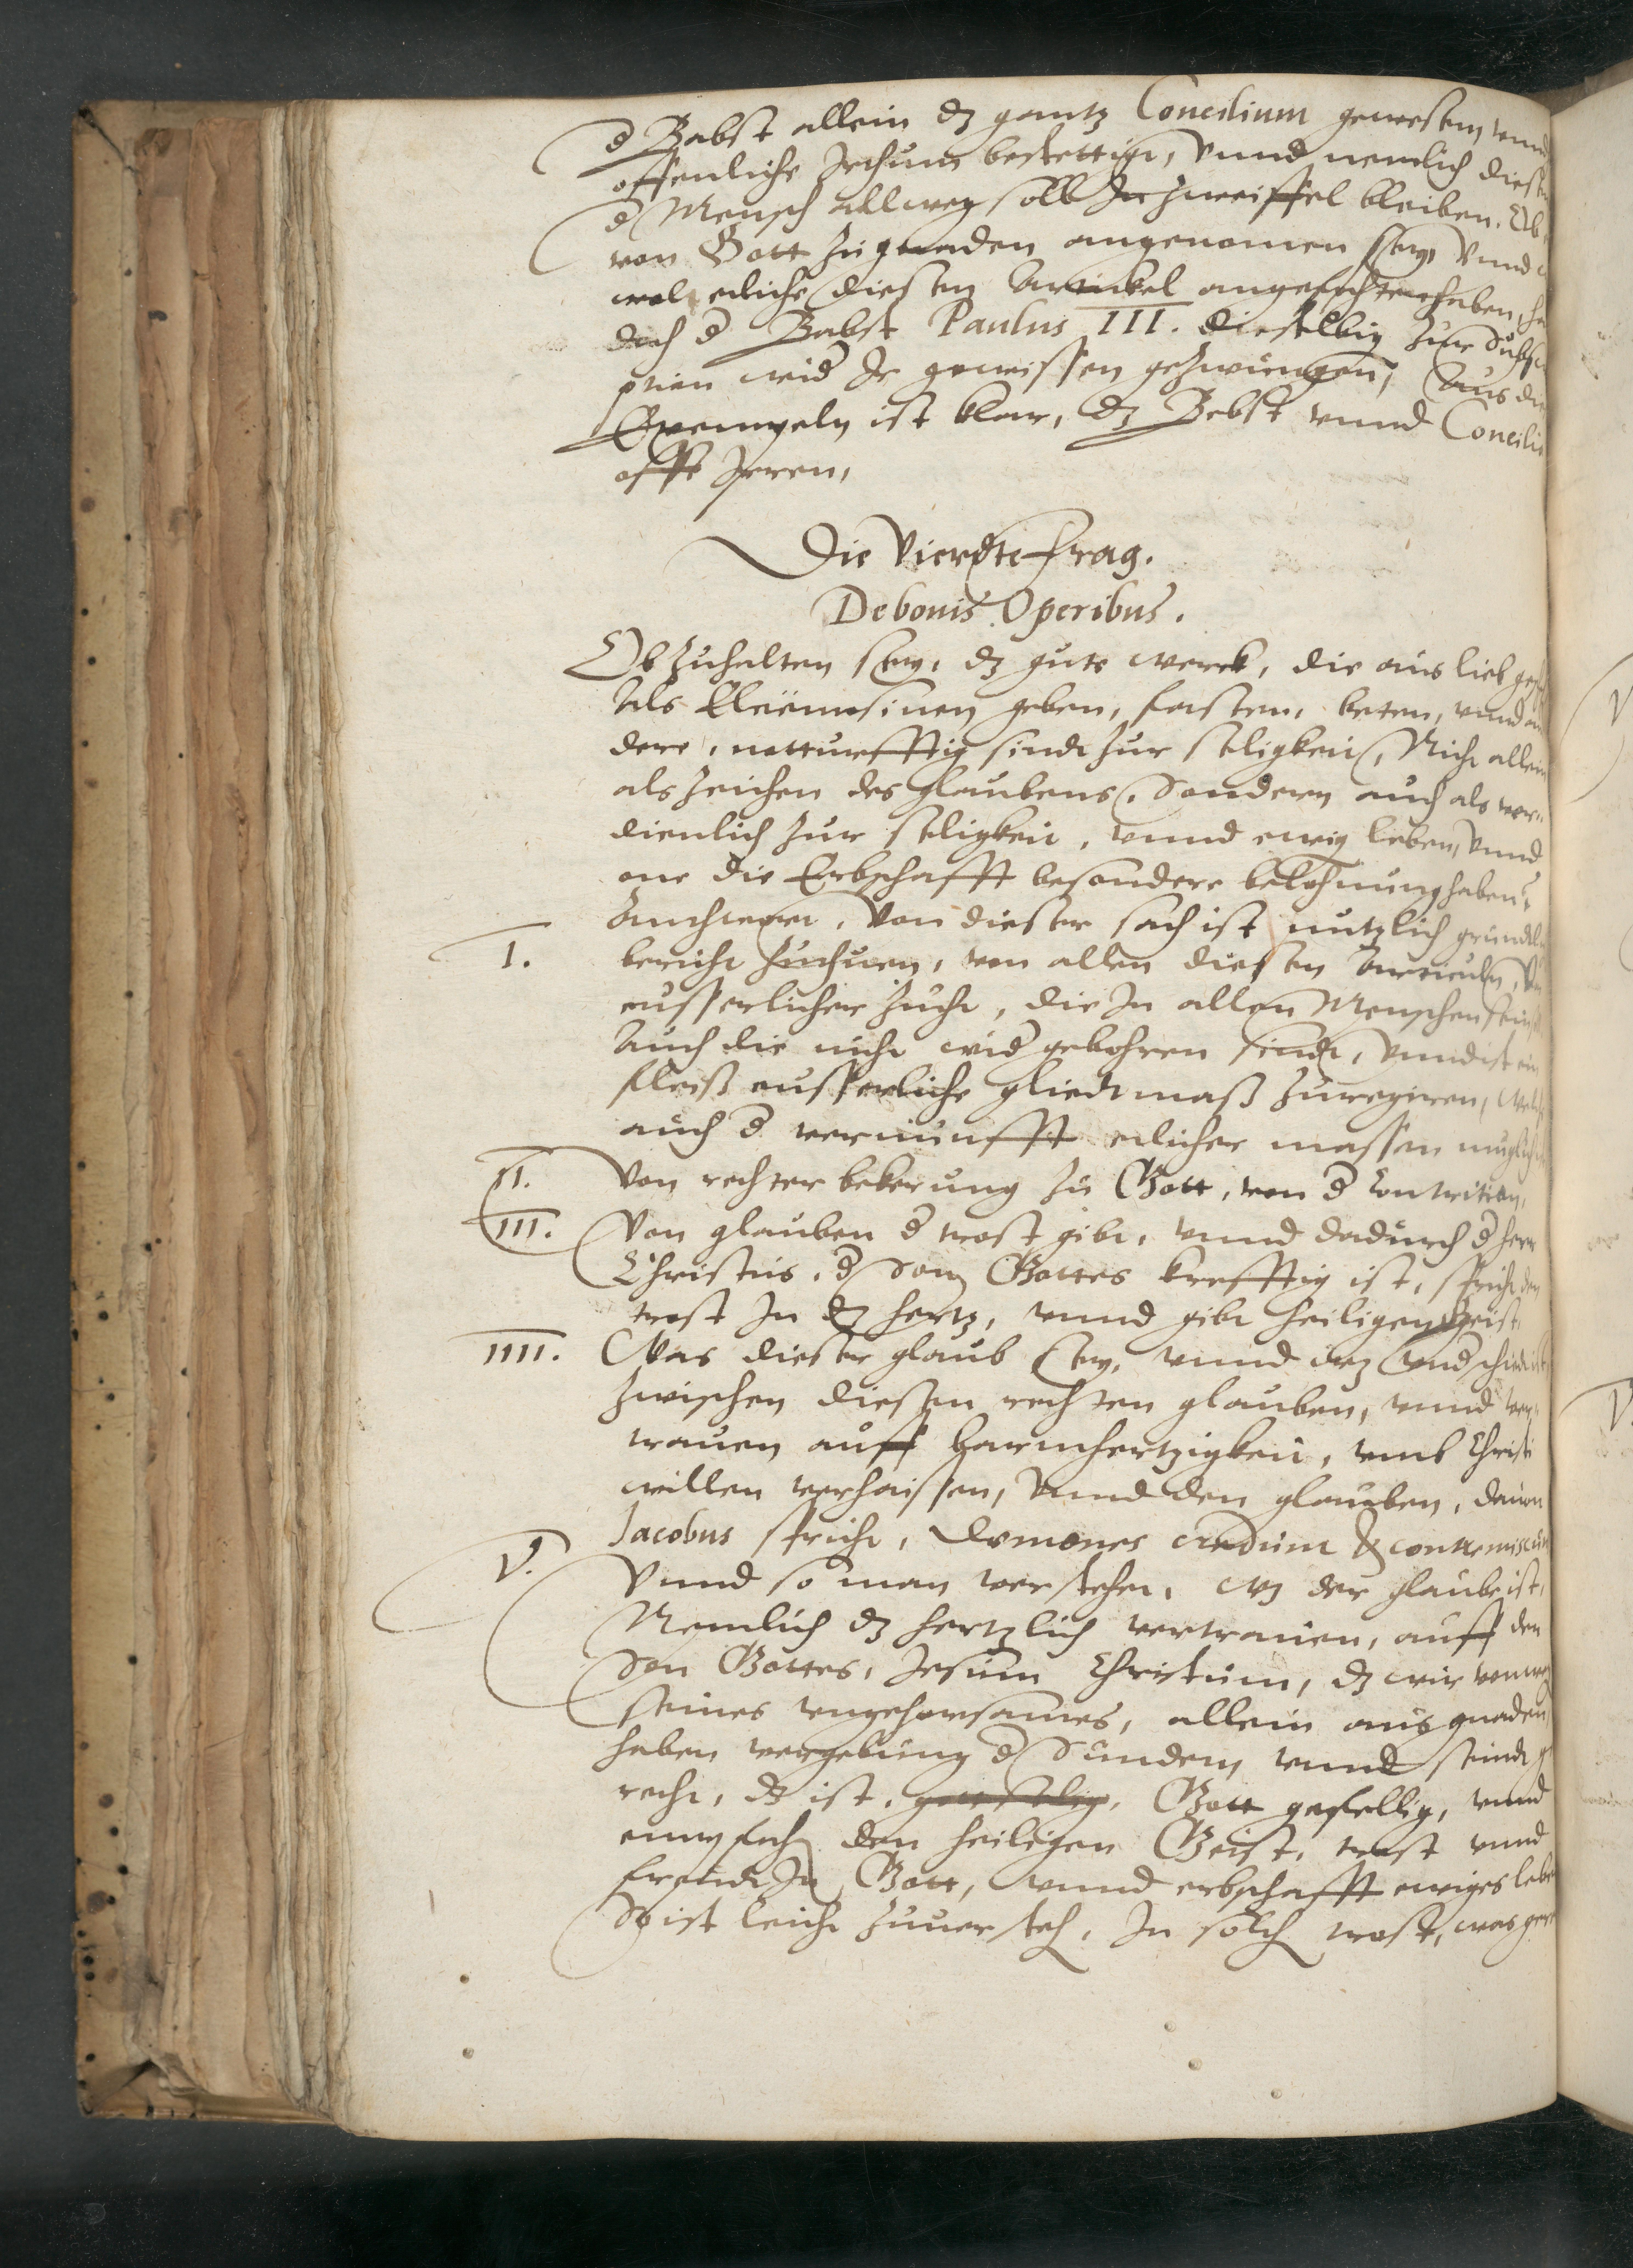 d Babst allein dz gantz Concilium gewesen, vnnd
offenliche Irthum bestettigt, Vnnd nemlich diesen
d Mensch allweg soll In Zweiffel bleiben. Ob
von Gott zu gnaden angenomen sey, Vnnd
wol etliche diesen Artickel angefochten haben, ha
doch d Babst Paulus III. dieselbig zur Subscr
ption wid Ir gewissen gezwungen, Aus die
Exempeln ist klar, dz Bebst vnnd Concilia
offt Irren,
Die Vierdte Frag.
De bonis Operibus.
Ob zuhalten sey, dz gute werck, die aus lieb gesch
Als Eleemosinen geben, fasten, beten, vnnd an
dere, notturfftig sindt zur seligkeit, Nicht allein
als zeichen des glaubens, Sondern auch als ver=
dienlich zur seligkeit, vnnd ewig leben, Vnnd
one die Erbschafft besondere belohnung haben?
I. Anthwort, Von dieser sach ist nutzlich gründtli
bericht zuthuen, von allen diesen Articuln, Von
eusserlicher zucht, die In allen Menschen sein soll
Auch die nicht wid gebohren sindt, Vnnd ist ein
fleiß eusserliche gliedtmaß zuregiren, Welche
auch d vernunfft etlicher massen muglich
II. Von rechter bekerung zu Gott, von d Contrition,
III. Von glauben d trost gibt, vnnd dadurch d herr
Christus, d Son Gottes krefftig ist, spricht den
trost In dz hertz, vnnd gibt heiligen Geist
IIII. Was dieser glaub sey, vnnd wz vnd schied ist
zwischen diesem rechten glauben, vnnd ver=
trauen auff Barmhertzigkeit, vmb Christi
willen verheissen, Vnnd den glauben, dauon
Jacobus spricht, Dæmones credunt & contremiscunt
V. Vnnd so man verstehet, wz der glaube ist,
Nemlich dz hertzlich vertrauen, auff den
Son Gottes, Jesum Christum, dz wir von weg
seines gehorsames, allein aus gnaden
haben vergebung d Sünden, vnnd sindt ge
recht, dz ist, gottselig, Gott gefellig, vnnd
empfach den heiligen Geist, trost vnnd
freudt In Gott, vnnd erbschafft ewiges leben
So ist leicht zuuersteh, In solch trost, was ger